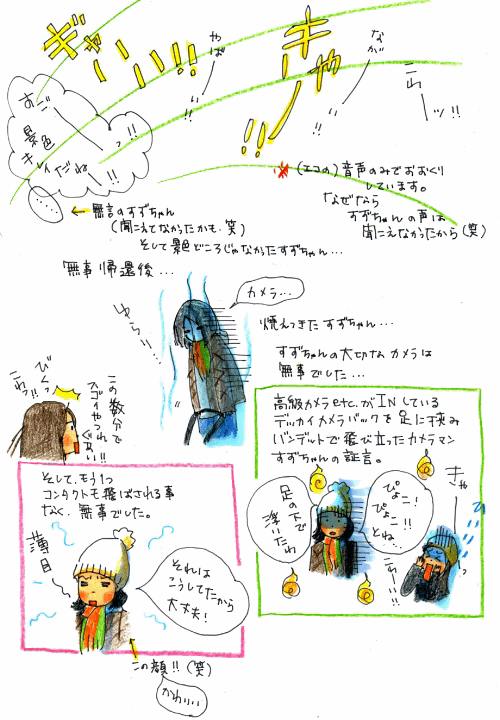 ギャーいい!!
やばーい!!
ギャーーい!!
ながーーい!!
こわーーッ!!
すごーーっ!!
景色
キレイだねーー!!
………
※(エコの)音声のみでおおくり
しています。
なぜなら
すずちゃんの声は
聞こえなかったから(笑)
←無言のすずちゃん
(聞こえてなかったかも。笑)
そして景色どころじゃなかったすずちゃん…
無事帰還後…
カメラ…
ゆらり…
燃えつきたすずちゃん…
すずちゃんの大切なカメラは
無事でした…
びくっ
こわっ!!
この数分で
スゴイやつれ
ぐあい!!
高級カメラetc.がINしている
デッカイカメラバックを足に挟み
バンデットで飛び立ったカメラマン
すずちゃんの証言。
足の下で
浮いたわ
ぴょこ!
ぴょこ!!
とね…
きゃーっ
こわーー!!
そして、もう1つ
コンタクトも飛ばされる事
なく、無事でした。
薄目
それは
こうしてたから
大丈夫!
この顔!!(笑)
かわいい